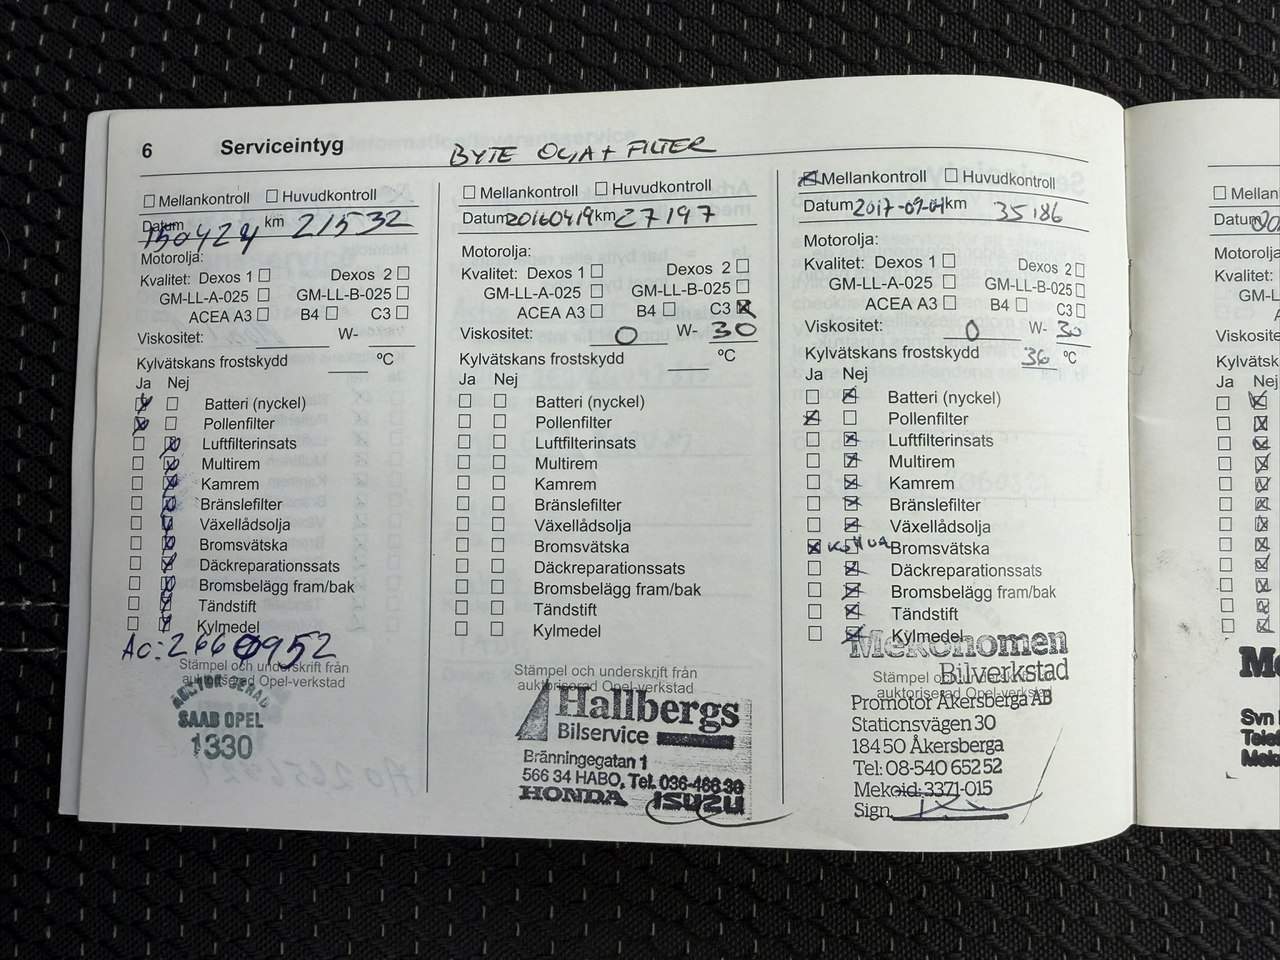 6 Serviceintyg
BYTE OLJA + FILTER
Mellankontroll Huvudkontroll
Datum 150424 km 21532
Motorolja:
Kvalitet: Dexos 1 Dexos 2
GM-LL-A-025 GM-LL-B-025
ACEA A3 B4 C3
Viskositet: W-
Kylvätskans frostskydd °C
Ja Nej
Batteri (nyckel)
Pollenfilter
Luftfilterinsats
Multirem
Kamrem
Bränslefilter
Växellådsolja
Bromsvätska
Däckreparationssats
Bromsbelägg fram/bak
Tändstift
Kylmedel
Ao: 2660952
Stämpel och underskrift från
auktoriserad Opel-verkstad
AUKTORISERAD
SAAB OPEL
1330
Mellankontroll Huvudkontroll
Datum 20160419 km 27197
Motorolja:
Kvalitet: Dexos 1 Dexos 2
GM-LL-A-025 GM-LL-B-025
ACEA A3 B4 C3
Viskositet: 0 W- 30
Kylvätskans frostskydd °C
Ja Nej
Batteri (nyckel)
Pollenfilter
Luftfilterinsats
Multirem
Kamrem
Bränslefilter
Växellådsolja
Bromsvätska
Däckreparationssats
Bromsbelägg fram/bak
Tändstift
Kylmedel
Stämpel och underskrift från
auktoriserad Opel-verkstad
Hallbergs
Bilservice
Bränningegatan 1
566 34 HABO, Tel. 036-466 36
HONDA ISUZU
Mellankontroll Huvudkontroll
Datum 2017-09-04 km 35186
Motorolja:
Kvalitet: Dexos 1 Dexos 2
GM-LL-A-025 GM-LL-B-025
ACEA A3 B4 C3
Viskositet: 0 W- 30
Kylvätskans frostskydd 36 °C
Ja Nej
Batteri (nyckel)
Pollenfilter
Luftfilterinsats
Multirem
Kamrem
Bränslefilter
Växellådsolja
Bromsvätska
Däckreparationssats
Bromsbelägg fram/bak
Tändstift
Kylmedel
Mekonomen
Bilverkstad
Stämpel och underskrift från
auktoriserad Opel-verkstad
Promotor Åkersberga AB
Stationsvägen 30
184 50 Åkersberga
Tel: 08-540 652 52
Mekoid: 3371-015
Sign.
Mellan
Datum
Motorolja
Kvalitet:
GM-L
A
Viskosite
Kylvätsk
Ja Nej
Me
Svn
Telef
Mek